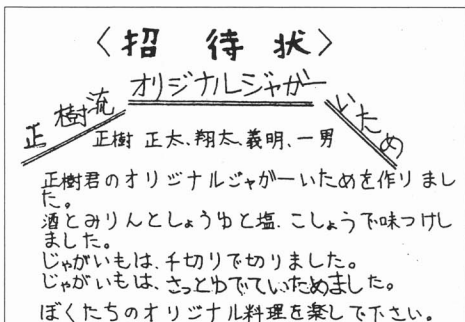 〈招待状〉
正樹流オリジナルジャガーいため
正樹 正太、翔太、義明、一男
正樹君のオリジナルジャガーいためを作りまし
た。
酒とみりんとしょうゆと塩、こしょうで味つけし
ました。
じゃがいもは、千切りで切りました。
じゃがいもは、さっとゆでていためました。
ぼくたちのオリジナル料理を楽しで下さい。